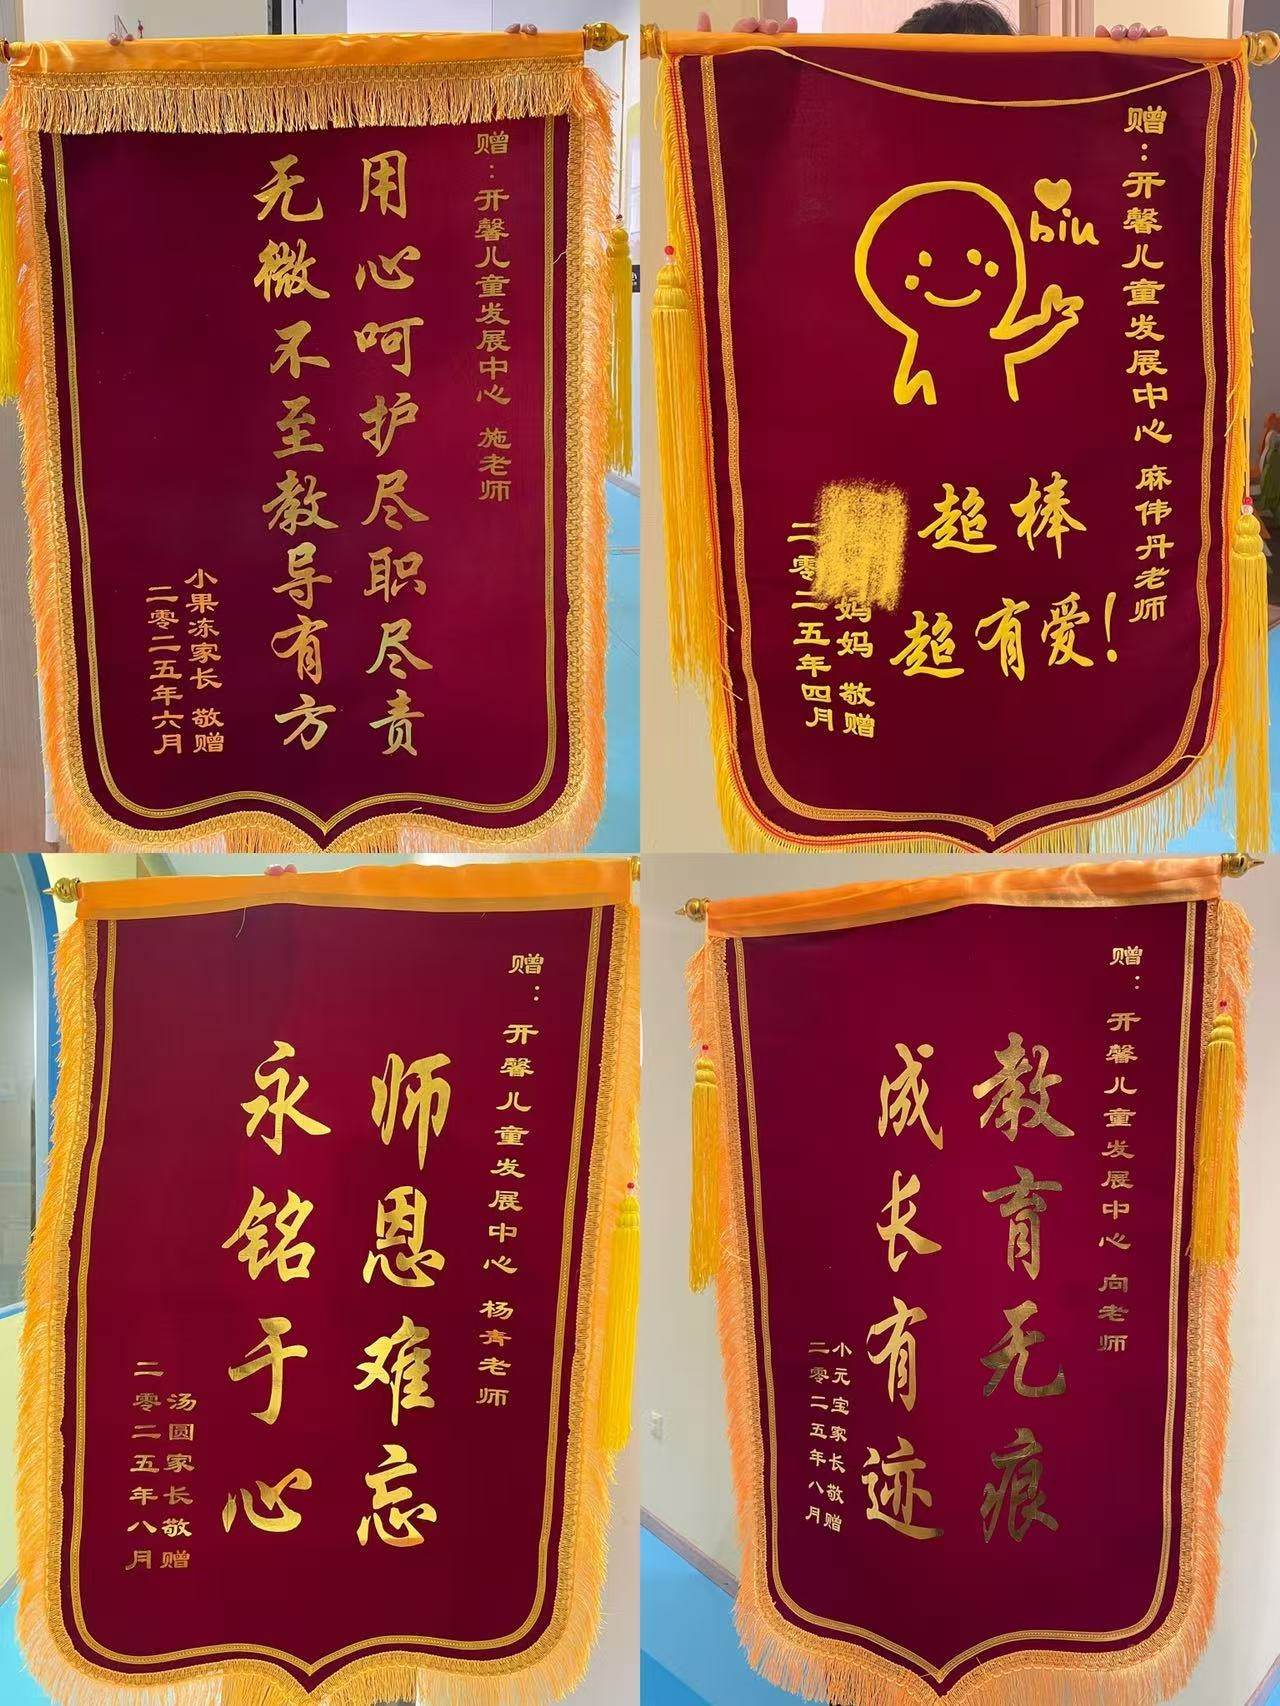 赠：开馨儿童发展中心 施老师
用心呵护尽职尽责
无微不至教导有方
小果冻家长 敬赠
二零二五年六月
赠：开馨儿童发展中心 麻伟丹老师
biu
超棒
超有爱！
妈妈 敬赠
二零二五年四月
赠：开馨儿童发展中心 杨青老师
师恩难忘
永铭于心
汤圆家长敬赠
二零二五年八月
赠：开馨儿童发展中心 向老师
教育无痕
成长有迹
小元宝家长敬赠
二零二五年八月